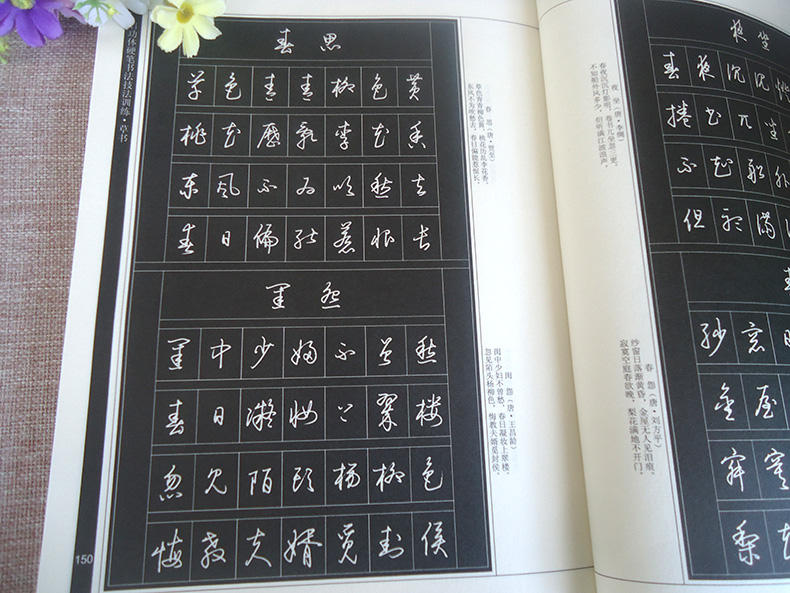 功体硬笔书法技法训练·草书
150
春思
草色青青柳色黄
桃花历乱李花香
东风不为吹愁去
春日偏能惹恨长
春 思(唐·贾至)
草色青青柳色黄，桃花历乱李花香。
东风不为吹愁去，春日偏能惹恨长。
闺怨
闺中少妇不曾愁
春日凝妆上翠楼
忽见陌头杨柳色
悔教夫婿觅封侯
闺 怨(唐·王昌龄)
闺中少妇不曾愁，春日凝妆上翠楼。
忽见陌头杨柳色，悔教夫婿觅封侯。
夜坐
春夜沉沉灯
卷书几坐
不知船外
但听满
夜 坐(唐·李绸)
春夜沉沉灯影明，卷书几坐忽三更。
不知船外风多少，但听满江波浪声。
春
纱窗日
金屋
寂寞
梨花
春 怨(唐·刘方平)
纱窗日落渐黄昏，金屋无人见泪痕。
寂寞空庭春欲晚，梨花满地不开门。